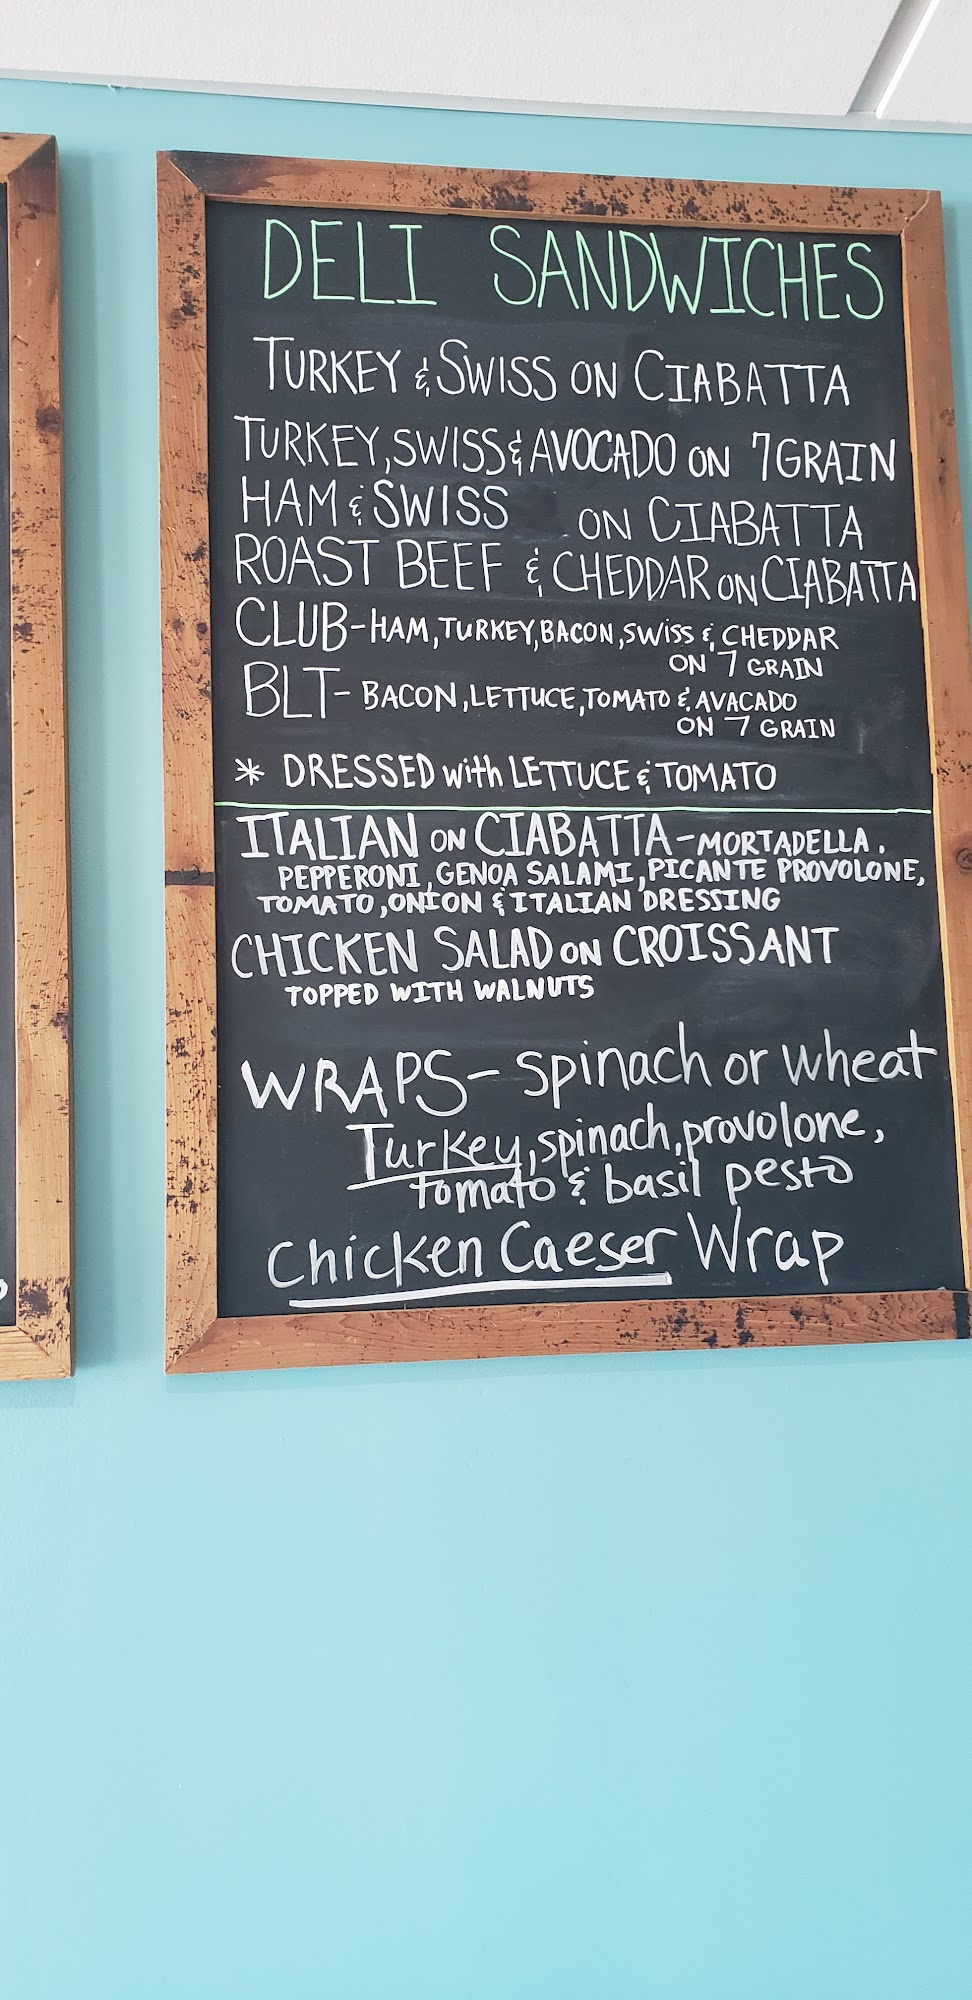 DELI SANDWICHES
TURKEY & SWISS ON CIABATTA
TURKEY, SWISS & AVOCADO ON 7 GRAIN
HAM & SWISS ON CIABATTA
ROAST BEEF & CHEDDAR ON CIABATTA
CLUB - HAM, TURKEY, BACON, SWISS & CHEDDAR
ON 7 GRAIN
BLT - BACON, LETTUCE, TOMATO & AVACADO
ON 7 GRAIN
* DRESSED with LETTUCE & TOMATO
ITALIAN ON CIABATTA - MORTADELLA,
PEPPERONI, GENOA SALAMI, PICANTE PROVOLONE,
TOMATO, ONION & ITALIAN DRESSING
CHICKEN SALAD ON CROISSANT
TOPPED WITH WALNUTS
WRAPS - spinach or wheat
Turkey, spinach, provolone,
tomato & basil pesto
Chicken Caeser Wrap